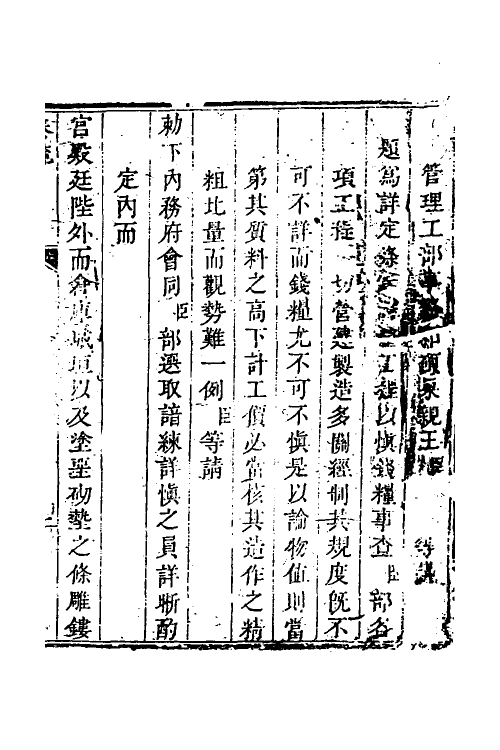 管理工部事務和碩果親王臣 等謹
題為詳定條 工程以慎錢糧事查臣部各
項工程一切營建製造多關經制其規度旣不
可不詳而錢糧尤不可不慎是以論物值則當
第其質料之高下計工價必當核其造作之精
粗比量而觀勢難一例臣等請
勅下內務府會同臣部選取諳練詳慎之員詳晰酌
定內而
宮殿廷陛外而倉庫城垣以及塗墍砌墊之條雕鏤